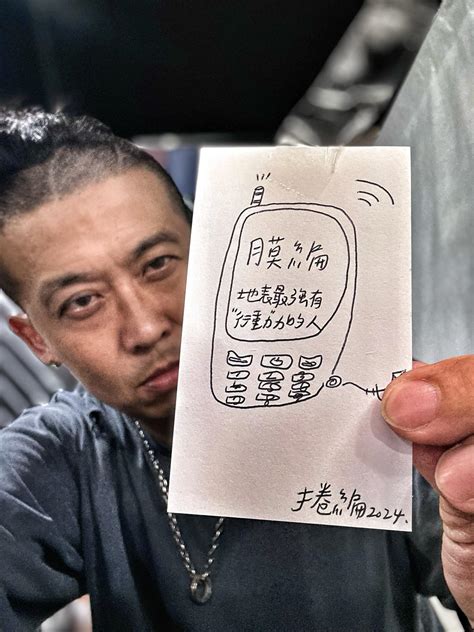 膜編
地表最強有
"行動"力的人
捲編2024.